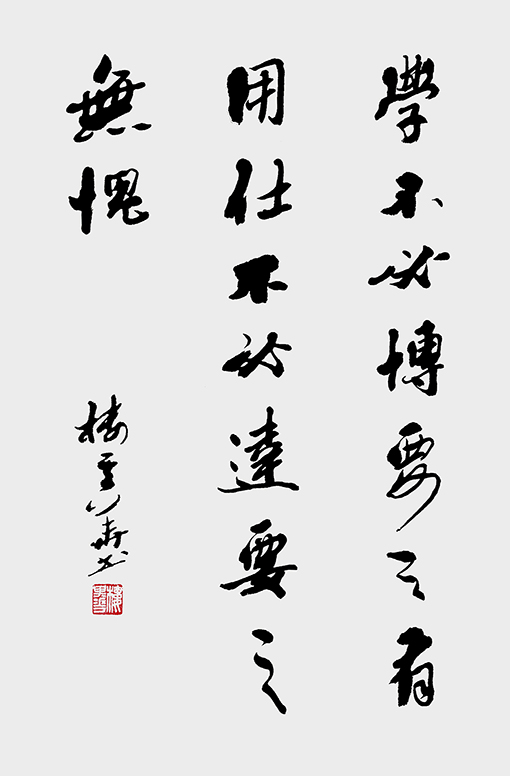 學不必博要之有
用仕不必達要之
無愧